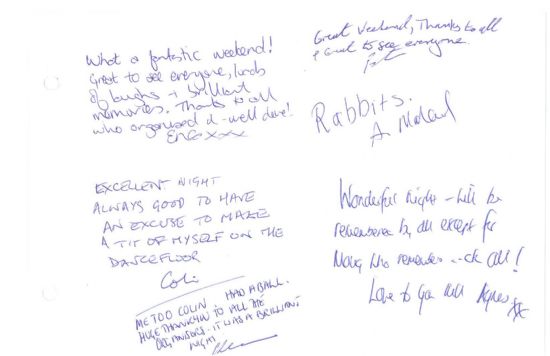 What a fantastic weekend!
Great to see everyone, loads
of laughs + brilliant
memories. Thanks to all
who organised it - well done!
xxx
Great Weekend, Thanks to all
& Great to see everyone.
Rabbits.
A
EXCELLENT NIGHT
ALWAYS GOOD TO HAVE
AN EXCUSE TO MAKE
A TIT OF MYSELF ON THE
DANCEFLOOR
Colin
ME TOO COLIN HAD A BALL.
HUGE THANKYOU TO ALL THE
ORGANISORS. IT WAS A BRILLIANT
NIGHT
Wonderful Night - will be
remembered by all except for
Many who remember ..ck all!
Love to you all Agnes xx